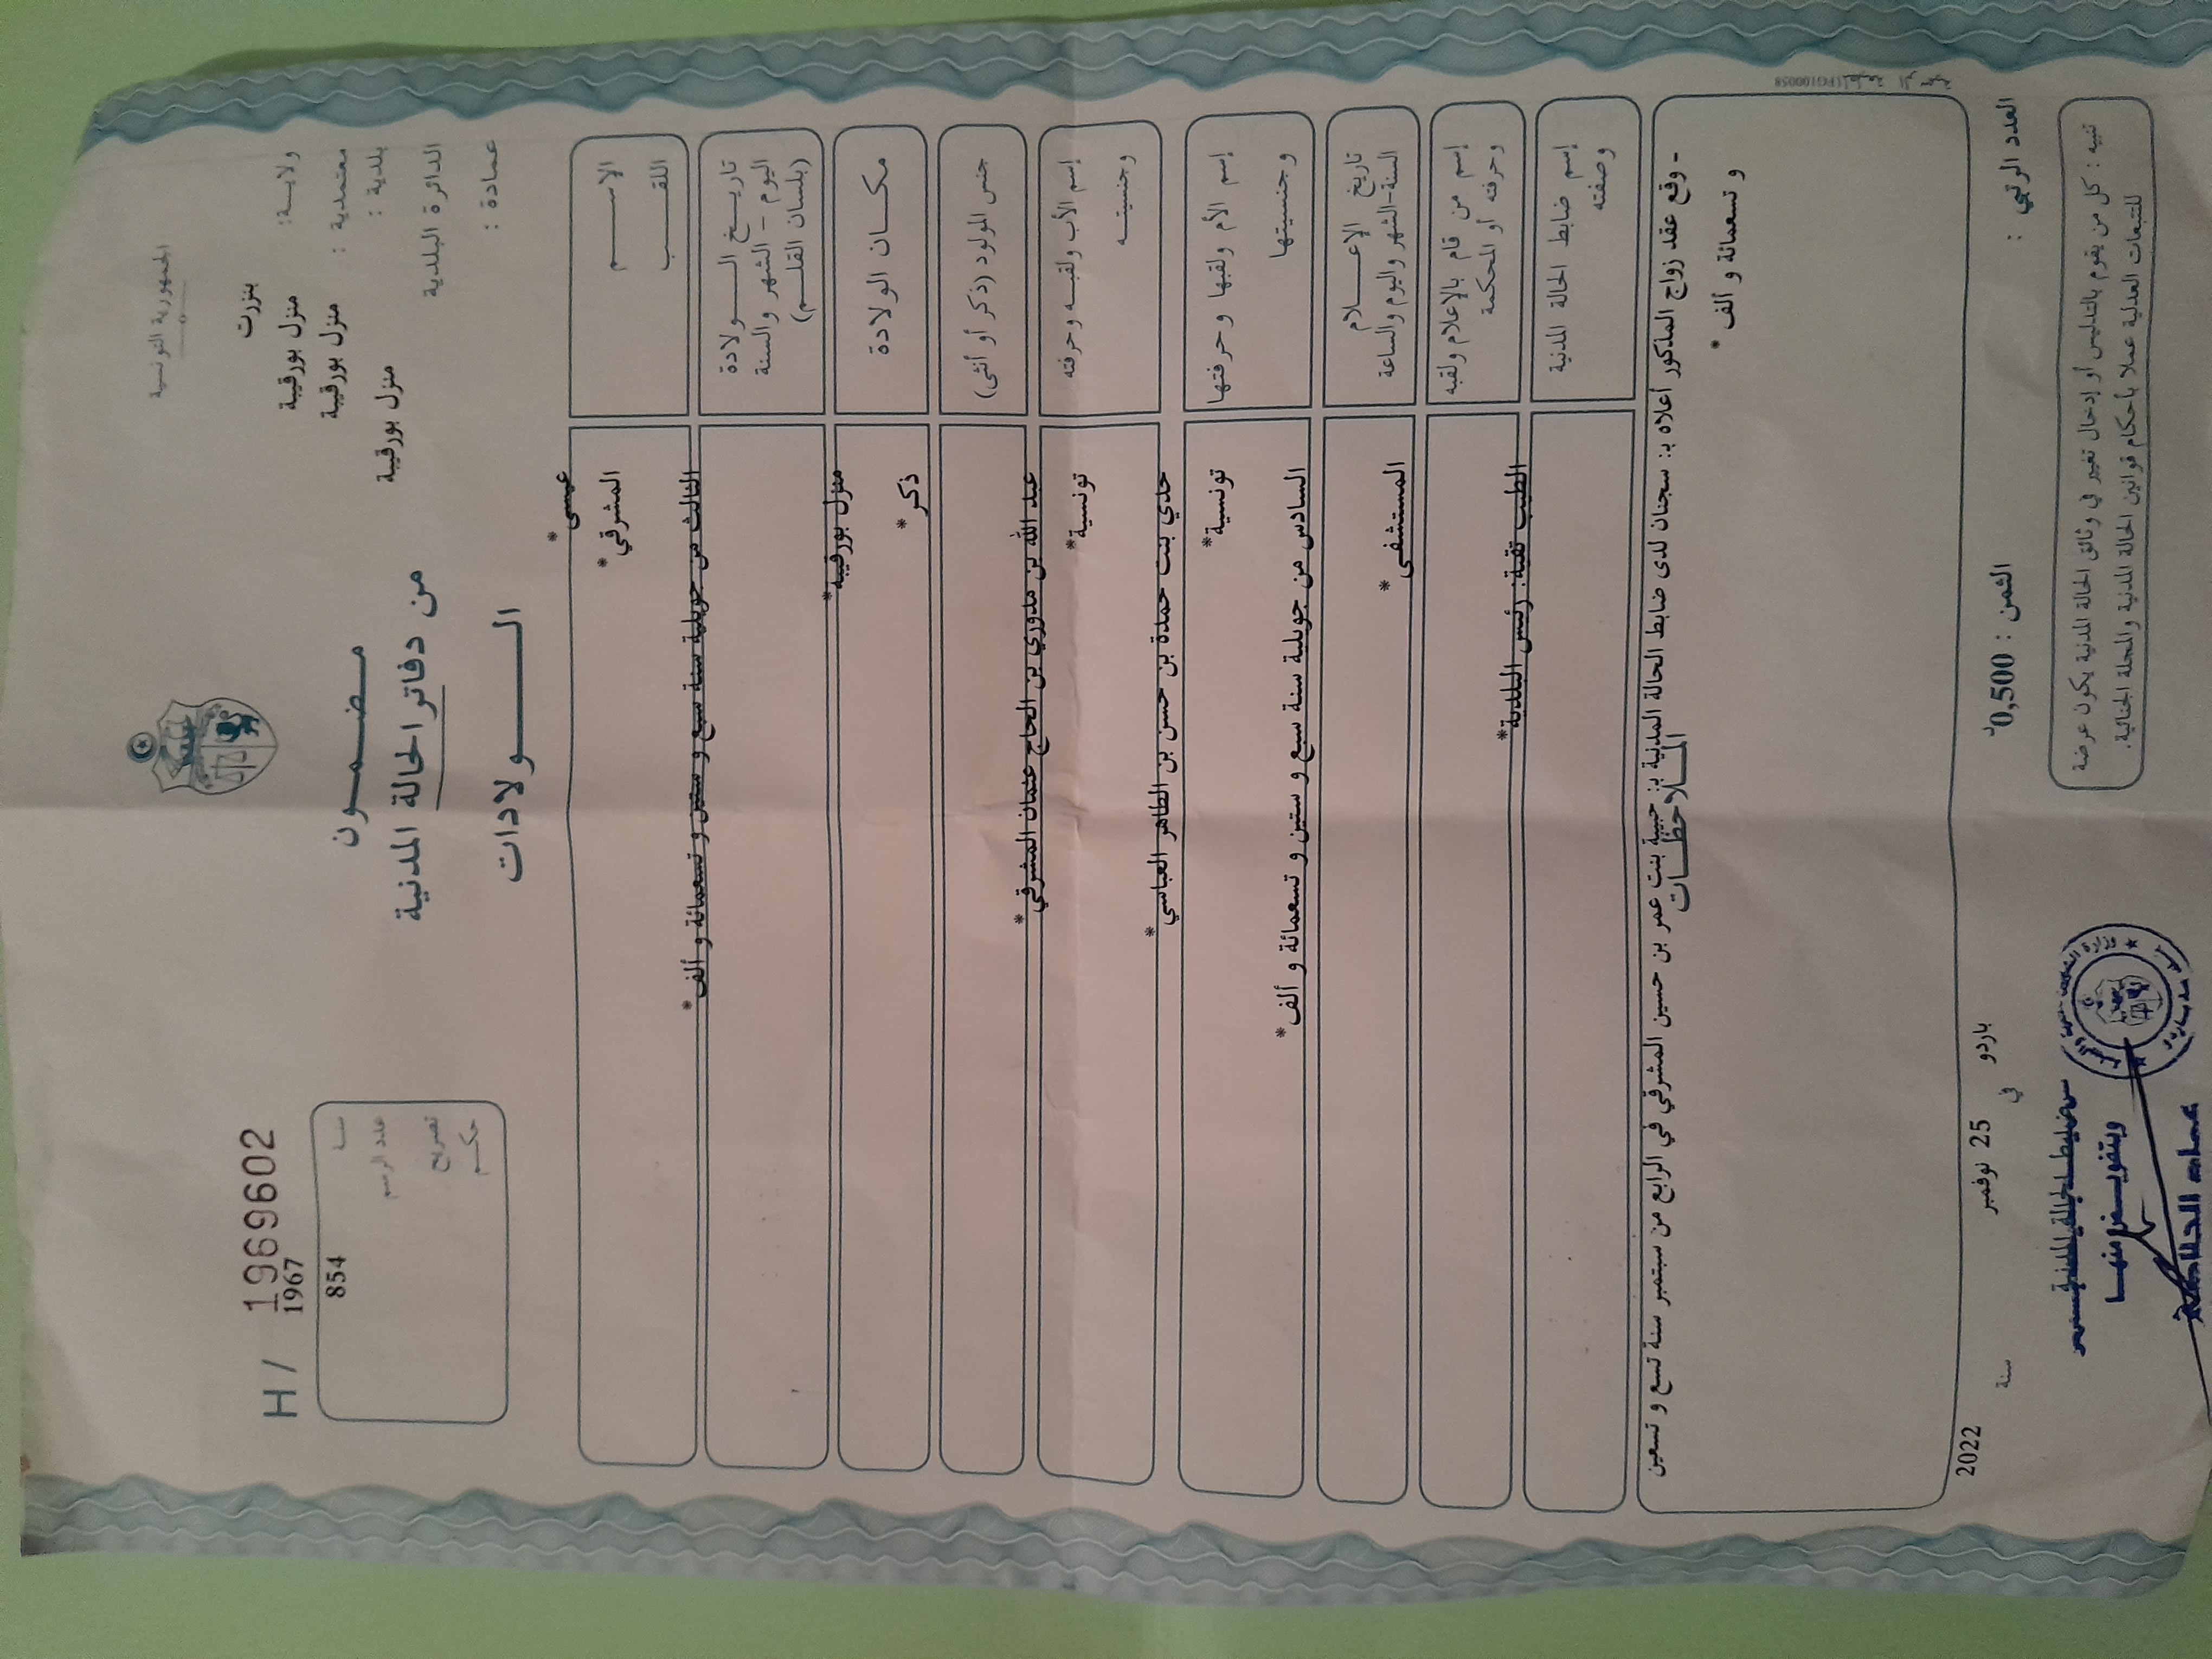 الجمهورية التونسية
ولاية: بنزرت
معتمدية : منزل بورقيبة
بلدية : منزل بورقيبة
الدائرة البلدية منزل بورقيبة
عمادة :
مضمون
من دفاتر الحالة المدنية
الولادات
H / 1969602
1967
سنة
854
عدد الرسم
تصريح
حكم
الإسم
اللقب
عيسى*
المشرقي*
تاريخ الولادة
اليوم - الشهر والسنة
(بلسان القلم)
الثالث من جويلية سنة سبع و ستين و تسعمائة و ألف*
مكان الولادة
منزل بورقيبة*
جنس المولود (ذكر أو أنثى)
ذكر*
إسم الأب ولقبه وحرفته
وجنسيته
عبد الله بن مدوري بن الحاج عثمان المشرقي*
تونسية*
إسم الأم ولقبها وحرفتها
وجنسيتها
حدي بنت حمدة بن حسن بن الطاهر العباسي*
تونسية*
تاريخ الإعلام
السنة-الشهر واليوم والساعة
السادس من جويلية سنة سبع و ستين و تسعمائة و ألف*
إسم من قام بالإعلام ولقبه
وحرفته أو المحكمة
المستشفى*
إسم ضابط الحالة المدنية
وصفته
الطيب تقية: رئيس البلدية*
الملاحظات
- وقع عقد زواج المذكور أعلاه بـ: سجنان لدى ضابط الحالة المدنية بـ: حبيبة بنت عمر بن حسين المشرقي في الرابع من سبتمبر سنة تسع و تسعين
و تسعمائة و ألف*
العدد الرتبي :
الثمن : 0,500د
باردو في 25 نوفمبر سنة 2022
تنبيه : كل من يقوم بالتدليس أو إدخال تغيير في وثائق الحالة المدنية يكون عرضة
للتتبعات العدلية عملا بأحكام قوانين الحالة المدنية والمجلة الجنائية.
وبتفويض منها